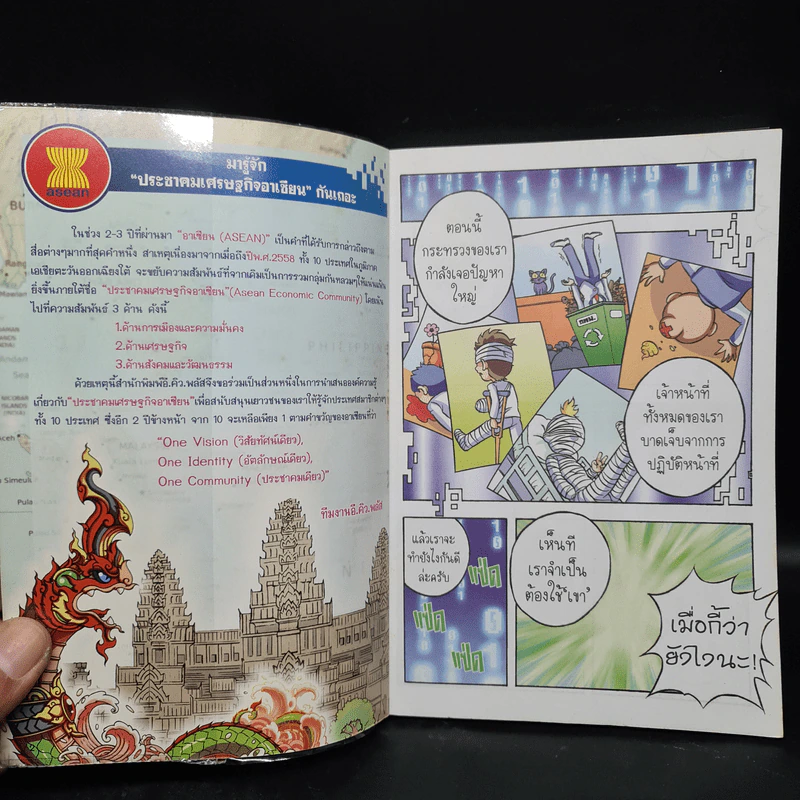 asean
มารู้จัก
"ประชาคมเศรษฐกิจอาเซียน" กันเถอะ
ในช่วง 2-3 ปีที่ผ่านมา "อาเซียน (ASEAN)" เป็นคำที่ได้รับการกล่าวถึงตาม
สื่อต่างๆมากที่สุดคำหนึ่ง สาเหตุเนื่องมาจากเมื่อถึงปีพ.ศ.2558 ทั้ง 10 ประเทศในภูมิภาค
เอเชียตะวันออกเฉียงใต้ จะขยับความสัมพันธ์ที่จากเดิมเป็นการรวมกลุ่มกันหลวมๆให้แน่นแฟ้น
ยิ่งขึ้นภายใต้ชื่อ "ประชาคมเศรษฐกิจอาเซียน"(Asean Economic Community) โดยเน้น
ไปที่ความสัมพันธ์ 3 ด้าน ดังนี้
1.ด้านการเมืองและความมั่นคง
2.ด้านเศรษฐกิจ
3.ด้านสังคมและวัฒนธรรม
ด้วยเหตุนี้สำนักพิมพ์อี.คิว.พลัสจึงขอร่วมเป็นส่วนหนึ่งในการนำเสนอองค์ความรู้
เกี่ยวกับ"ประชาคมเศรษฐกิจอาเซียน"เพื่อสนับสนุนเยาวชนของเราให้รู้จักประเทศสมาชิกต่างๆ
ทั้ง 10 ประเทศ ซึ่งอีก 2 ปีข้างหน้า จาก 10 จะเหลือเพียง 1 ตามคำขวัญของอาเซียนที่ว่า
"One Vision (วิสัยทัศน์เดียว),
One Identity (อัตลักษณ์เดียว),
One Community (ประชาคมเดียว)"
ทีมงานอี.คิว.พลัส
ตอนนี้
กระทรวงของเรา
กำลังเจอปัญหา
ใหญ่
เจ้าหน้าที่
ทั้งหมดของเรา
บาดเจ็บจากการ
ปฏิบัติหน้าที่
แล้วเราจะ
ทำยังไงกันดี
ล่ะครับ
แป่ด
แป่ด
แป่ด
เห็นที
เราจำเป็น
ต้องใช้'เขา'
เมื่อกี้ว่า
ยังไงนะ!